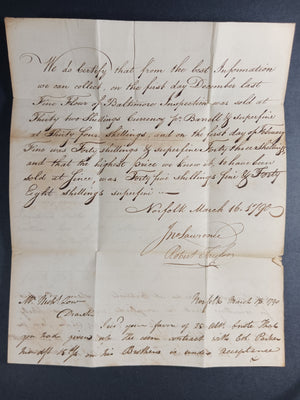 We do Certify that from the best Information
we can collect, on the first day December last
Fine Flour of Baltimore Inspection was sold at
Thirty two Shillings Currency pr. Barrell & superfine
at Thirty Four shillings, and on the first of February
Fine was Forty shillings & superfine Forty three Shillings
and that the highest price we know of to have been
sold at since, was Forty five shillings fine & Forty
Eight shillings superfine
Norfolk March 16. 1790
Jno Lawrence
Robert Taylor
Mr. Nichs. Low Norfolk March 18. 1790
Dear Sir
your favor of 28 Ult. wrote that
you had given up the corn contract with Col. Parker
his Brothers is under acceptance